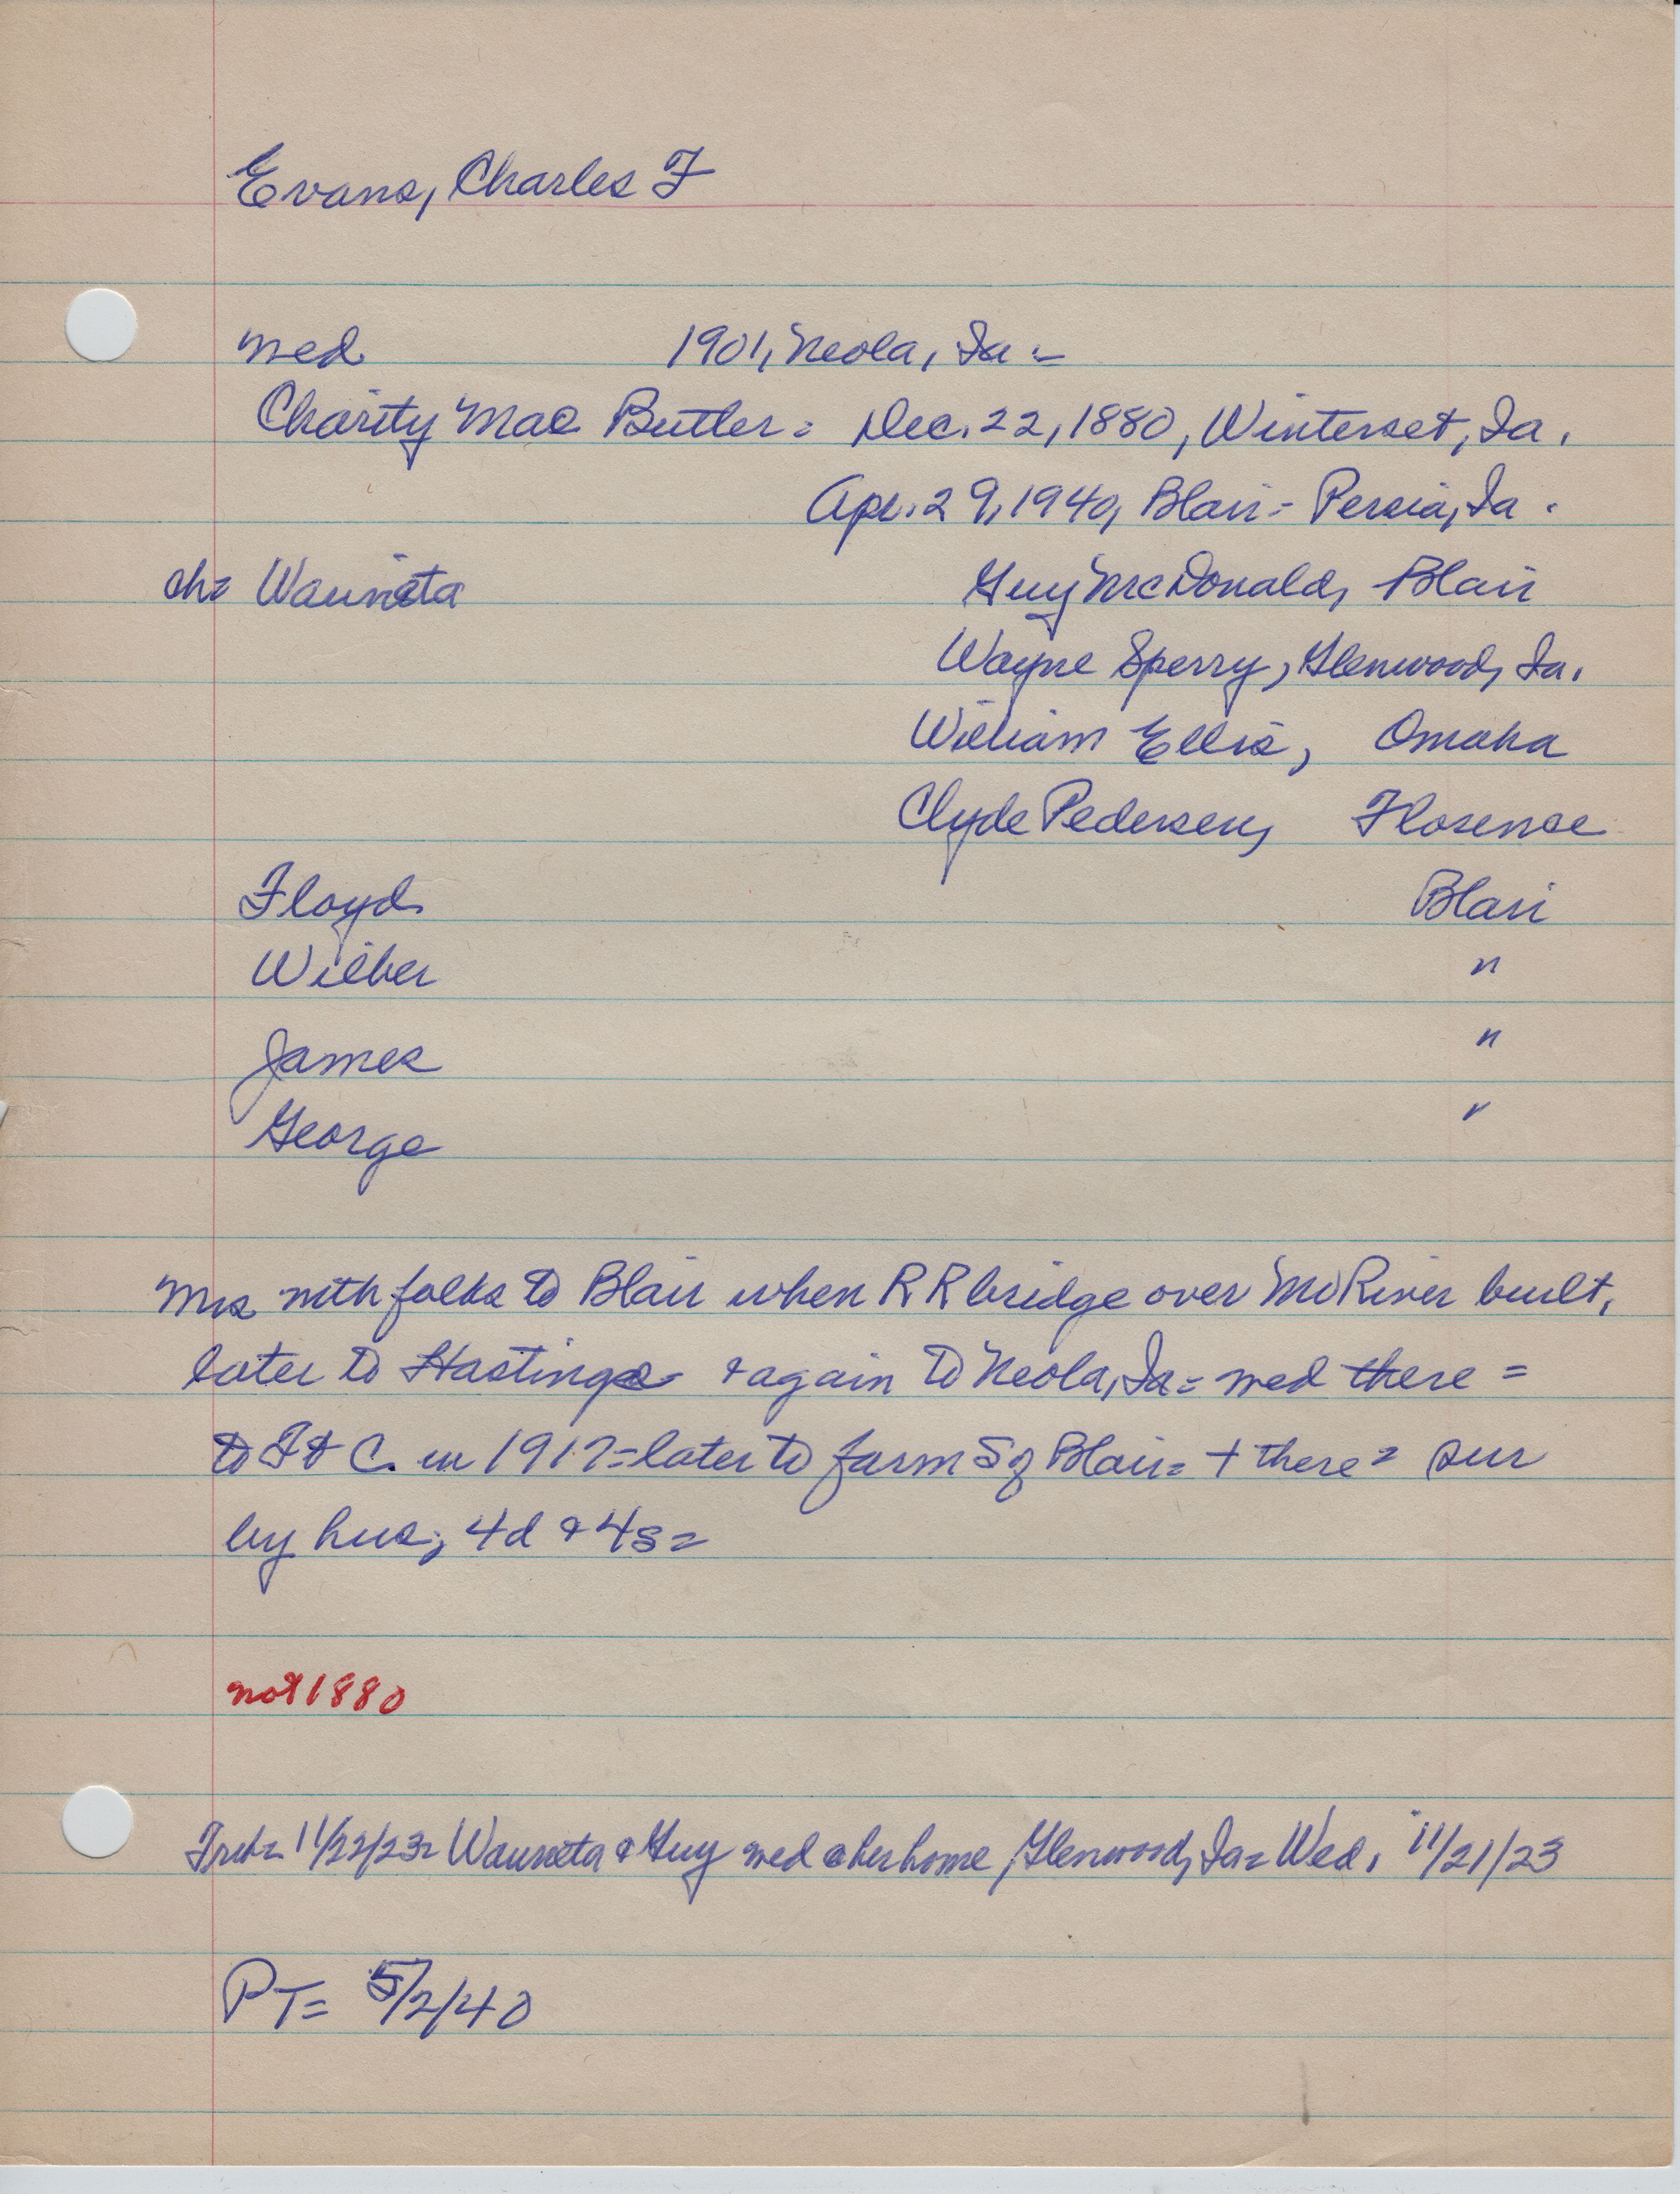 Evans, Charles F
med 1901, Neola, Ia =
Charity Mae Butler = Dec. 22, 1880, Winterset, Ia.
Apr. 29, 1940, Blair = Persia, Ia.
ch= Wauneta Guy McDonald, Blair
Wayne Sperry, Glenwood, Ia.
William Ellis, Omaha
Clyde Pedersen, Florence
Floyd Blair
Wilber "
James "
George "
Mrs with folks to Blair when RR bridge over MoRiver built,
later to Hastings & again to Neola, Ia = med there =
to Ft C. in 1917 = later to farm S of Blair = + there = sur
by hus, 4d & 4s =
not 1880
Trib= 11/22/23= Wauneta & Guy med @ her home, Glenwood, Ia = Wed, 11/21/23
PT= 5/2/40